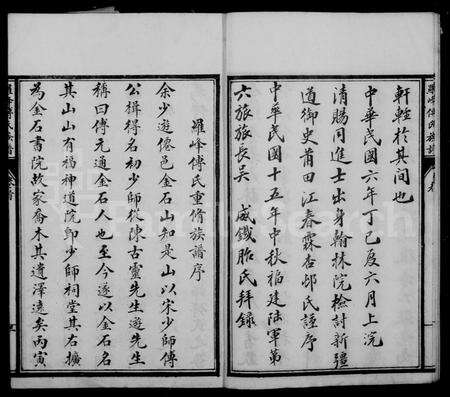 軒輊於其間也
中華民國六年丁巳度六月上浣
清賜同進士出身翰林院檢討新疆
道御史莆田江春霖杏邨氏謹序
中華民國十五年中秋福建陸軍第
六旅旅長吳 威鐵胎氏拜録
羅峰傅氏重修族譜序
余少遊僊邑金石山知是山以宋少師傅
公楫得名初少師從陳古靈先生遊先生
稱曰傅元通金石人也至今遂以金石名
其山山有福神道院即少師祠堂其右擴
為金石書院故家喬木其遺澤遠矣丙寅